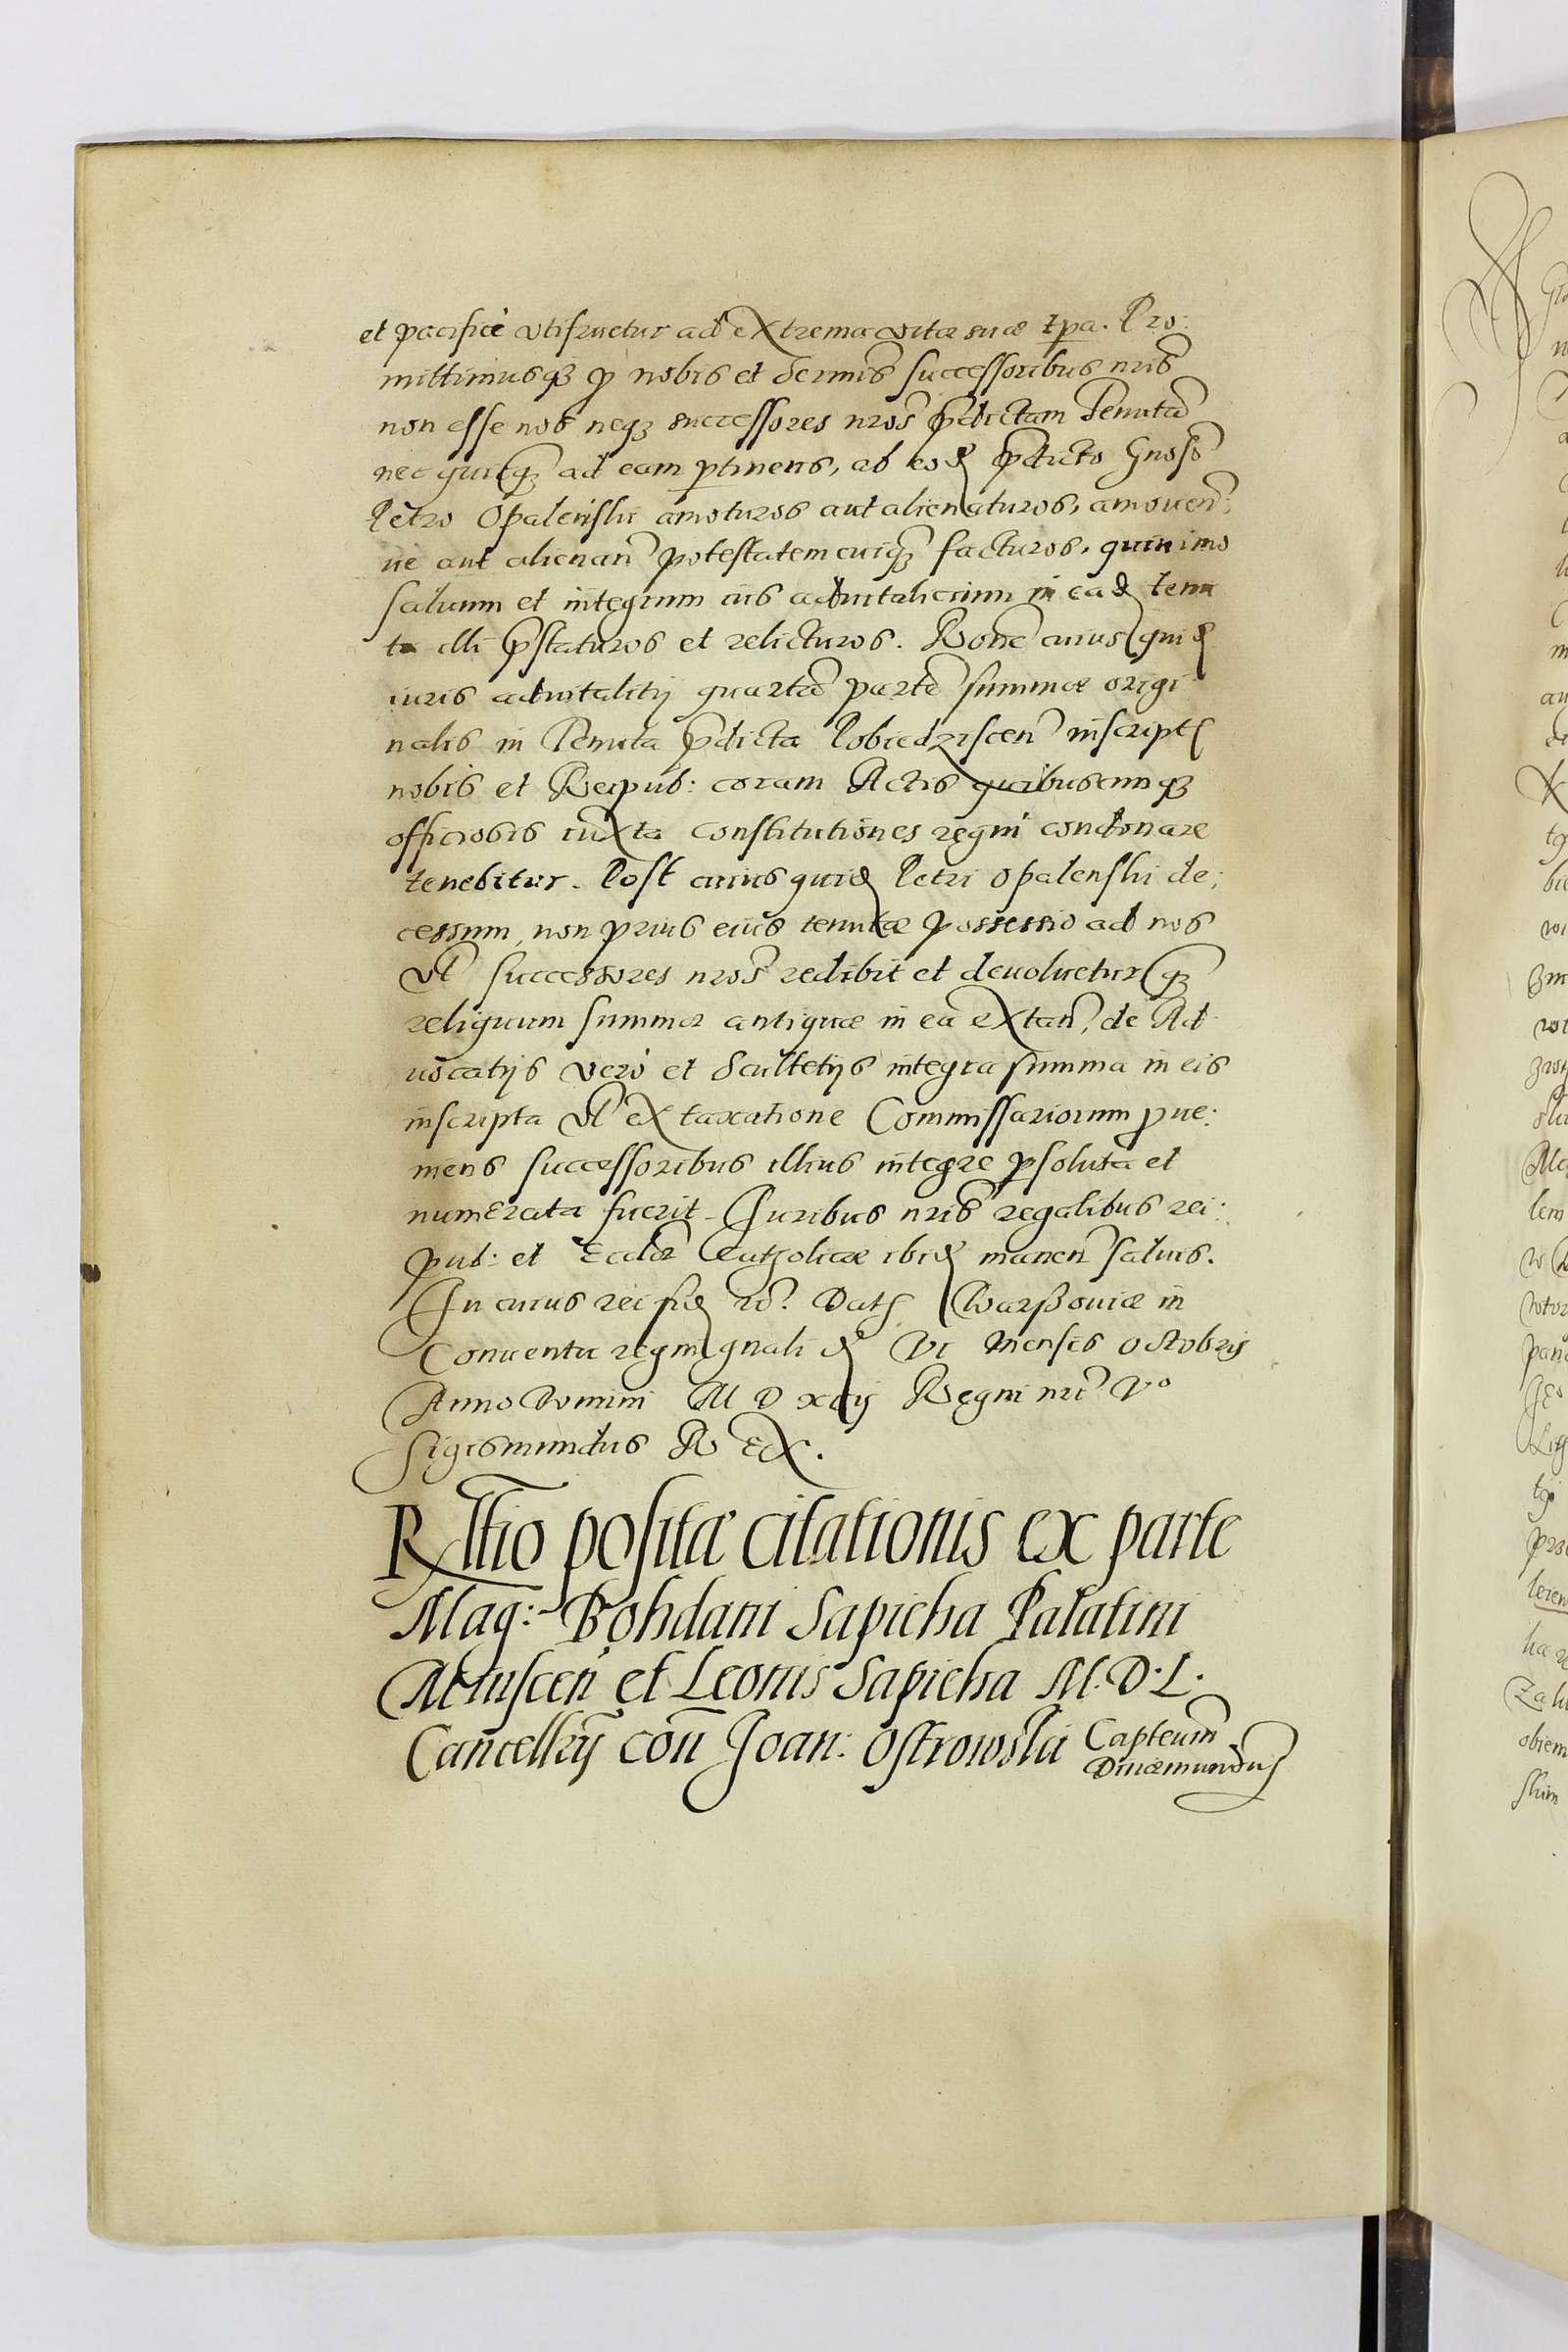 et pacificè vtifruetur ad extrema vitæ suæ tpa. Pro:
mittimusq3 p nobis et sermis successoribus nris
non esse nos neq3 successores nros pdictam Tenutã
nec quicq3 ad eam ptinens, ab eod pdicto Gnoso
Petro Opalenski amoturos aut alienaturos, amouen:
ue aut alienan potestatem cuiq3 facturos, quin imo
saluum et integrum ius aduitalicium in ead tenu
ta illi pstaturos et relicturos. Rone cuius quid
iuris aduitalitij quartã partẽ summæ origi
nalis in Tenuta pdicta Pobiedziscen inscriptę
nobis et Reipub: coram Actis quibuscunq3
officiosis iuxta constitutiones regni condonare
tenebitur. Post cuius quid Petri Opalenski de:
cessum, non prius eius tenutæ possessio ad nos
vl successores nros redibit et deuoluetur q3
reliquum summæ antiquæ in ea extan, de Ad
uocatijs verò et Scultetijs integra summa in eis
inscripta vl ex taxatione Commissariorum pue:
niens successoribus illius integre psoluta et
numerata fuerit. Juribus nris regalibus rei:
pub: et Eccłæ Catholicæ ibid manen saluis.
In cuius rei fid rc. Datę Warssouiæ in
Conuentu regni gnali d VI mensis Octobris
Anno Domini M D xcij Regni nri Vo
Sigismundus Rex.
Rłłio positæ citationis ex parte
Mag: Bohdani Sapieha Palatini
Minscen et Leonis Sapieha M. D. L.
Cancellrij con Joan: Ostrowski Capteum
Dinæmunden